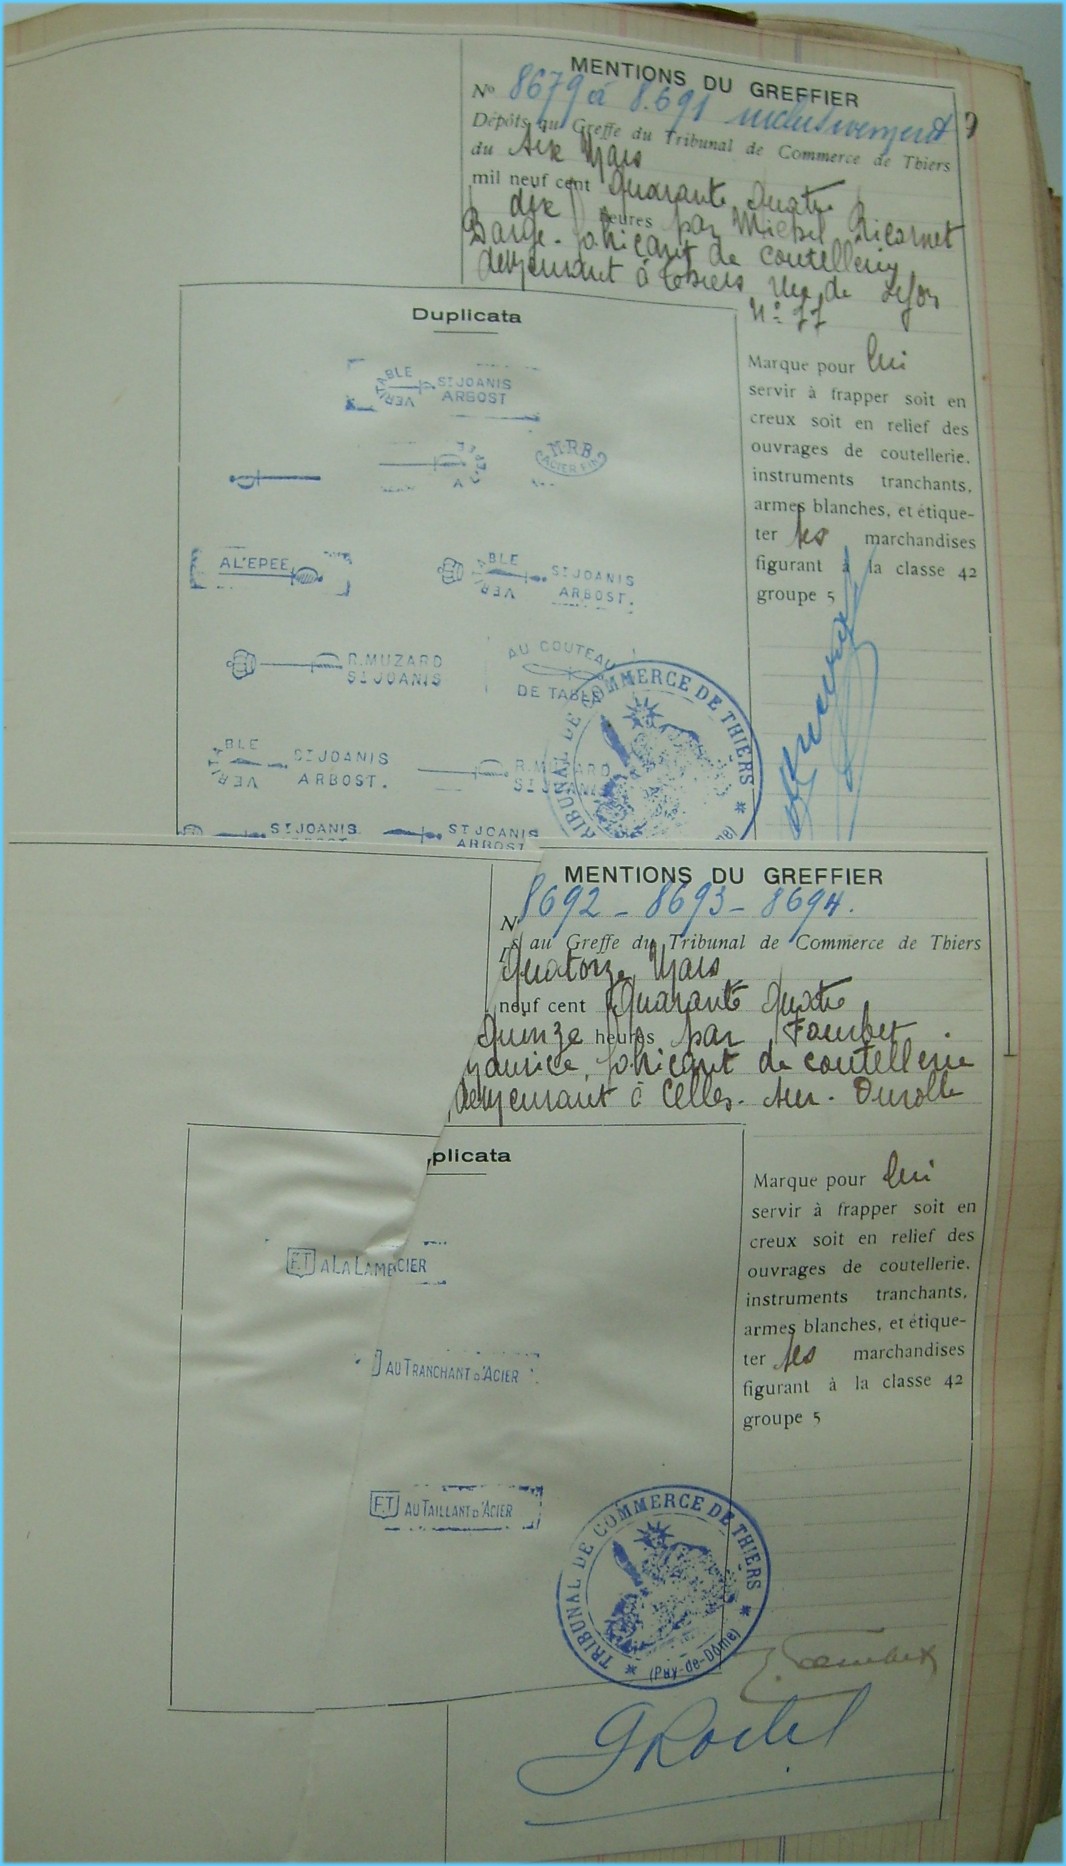 MENTIONS DU GREFFIER
No 8679 à 8.691 inclusivement
Dépôts au Greffe du Tribunal de Commerce de Thiers
du Mars
mil neuf cent Quarante Quatre
dix heures par Michel
Barge - fabricant de coutellerie
demeurant à Thiers rue de Lyon
No: 77
Duplicata
VERITABLE ST JOANIS
ARBOST
M.R.B
ACIER FIN
A L'EPEE
VERITABLE ST JOANIS
ARBOST.
R. MUZARD
ST JOANIS
AU COUTEAU
DE TABLE
VERITABLE ST JOANIS
ARBOST.
R. MUZARD
ST JOANIS
ST JOANIS
ARBOST
ST JOANIS
ARBOST
TRIBUNAL DE COMMERCE DE THIERS
Marque pour lui
servir à frapper soit en
creux soit en relief des
ouvrages de coutellerie.
instruments tranchants,
armes blanches, et étique-
ter ses marchandises
figurant à la classe 42
groupe 5
MENTIONS DU GREFFIER
N 8692 - 8693 - 8694.
s au Greffe du Tribunal de Commerce de Thiers
Quatorze Mars
neuf cent Quarante Quatre
Quinze heures par
Maurice, fabricant de coutellerie
demeurant à Celles-sur-Durolle
plicata
F.T A LA LAME ACIER
AU TRANCHANT D'ACIER
F.T AU TAILLANT D'ACIER
TRIBUNAL DE COMMERCE DE THIERS
(Puy-de-Dôme)
Marque pour lui
servir à frapper soit en
creux soit en relief des
ouvrages de coutellerie.
instruments tranchants,
armes blanches, et étique-
ter ses marchandises
figurant à la classe 42
groupe 5